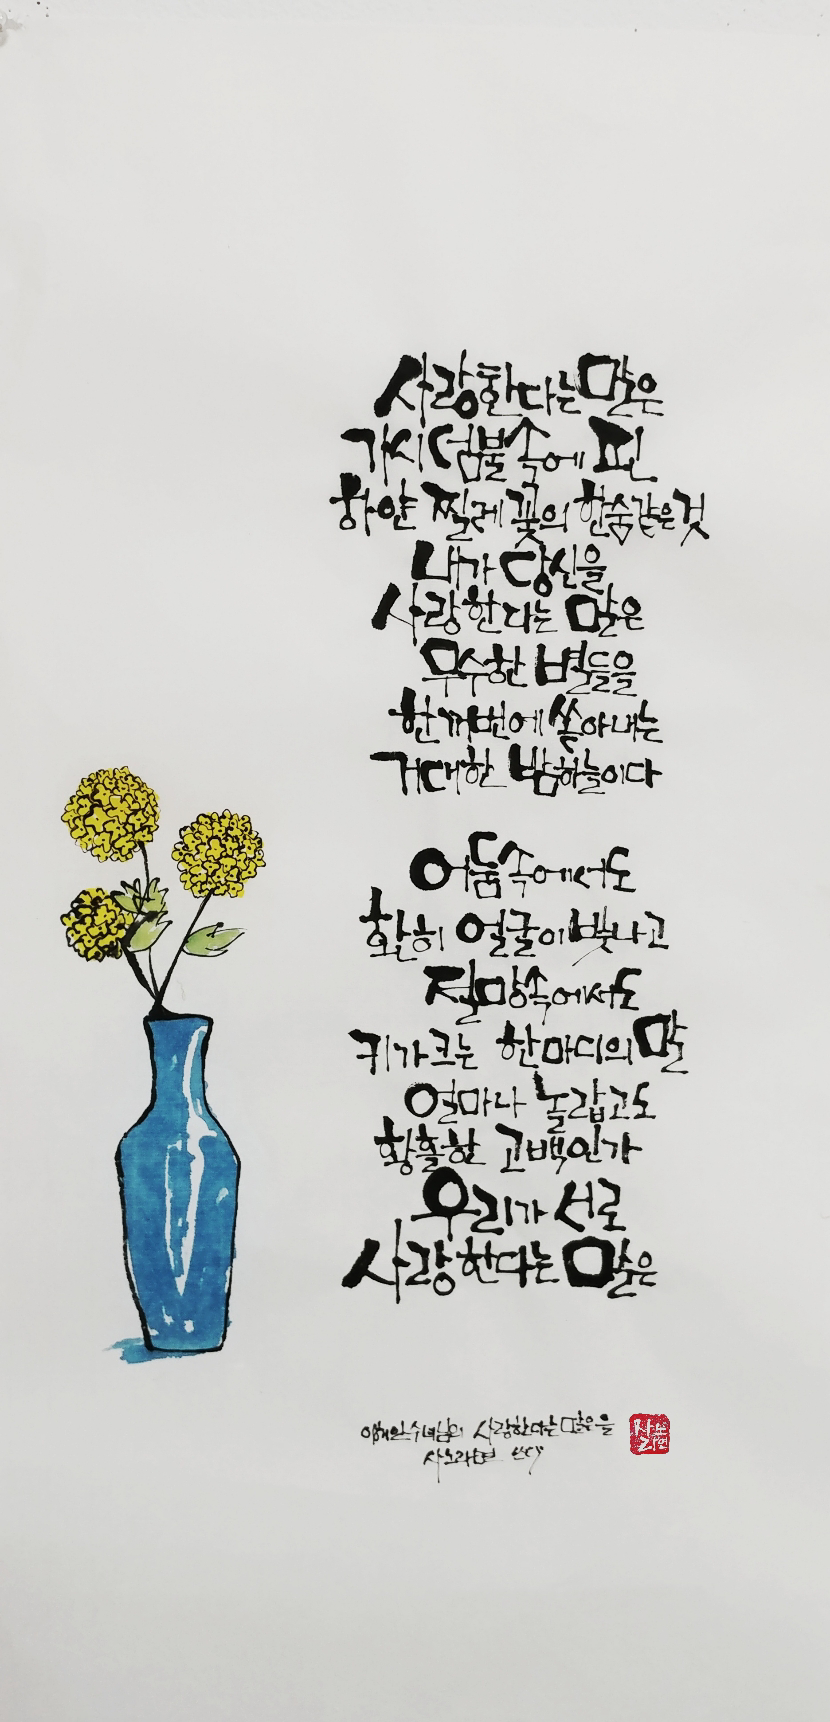 사랑한다는 말은
가시덤불 속에 핀
하얀 찔레꽃의 한숨같은것
내가 당신을
사랑한다는 말은
무수한 별들을
한꺼번에 쏟아내는
거대한 밤하늘이다
어둠속에서도
환히 얼굴이 빛나고
절망속에서도
키가크는 한마디의 말
얼마나 놀랍고도
황홀한 고백인가
우리가 서로
사랑한다는 말은
이해인수녀님의 사랑한다는 말은을